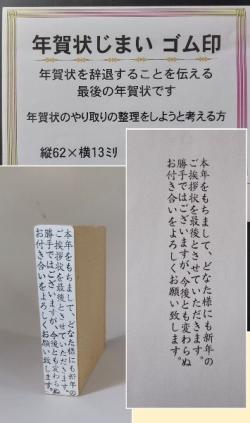 年賀状じまい ゴム印
年賀状を辞退することを伝える
最後の年賀状です
年賀状のやり取りの整理をしようと考える方
縦62×横13ミリ
本年をもちまして、どなた様にも新年の
ご挨拶状を最後とさせていただきます。
勝手ではございますが、今後とも変わらぬ
お付き合いをよろしくお願い致します。
本年をもちまして、どなた様にも新年の
ご挨拶状を最後とさせていただきます。
勝手ではございますが、今後とも変わらぬ
お付き合いをよろしくお願い致します。